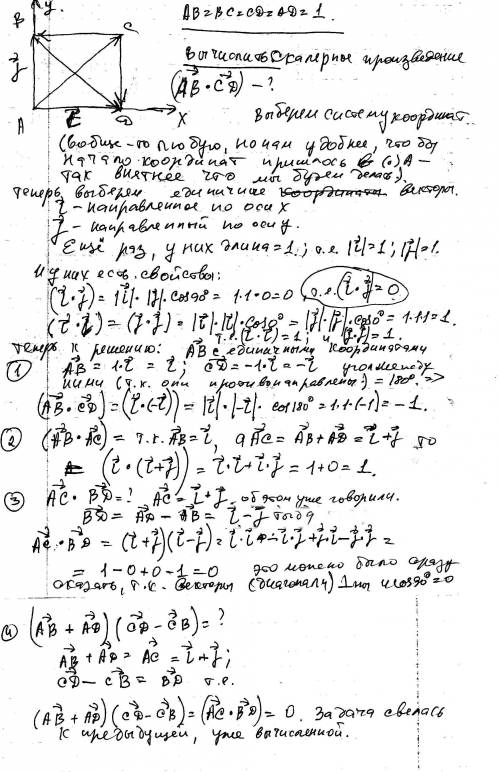 y
B
C
j
A
i
D
X
AB=BC=CD=AD=1.
Вычислить скалярное произведение
(AB·CD)-?
Выберем систему координат
(вобще-то любую, но нам удобнее, что бы
начало координат пришлось в (·) A -
так внятнее что мы будем делать).
теперь выберем единичные векторы.
i - направленное по оси x
j - направленный по оси y.
Ещё раз, у них длина=1; т.е |i|=1; |j|=1.
и у них есть свойства:
(i·j)=|i|·|j|·cos90°=1·1·0=0, т.е. (i·j)=0
(i·i)=(j·j)=|i|·|i|·cos0°=|j|·|j|·cos0°=1·1·1=1.
т.е (i·i)=1; и (j·j)=1.
теперь к решению: AB с единичными координатами
① AB=1·i=i; CD=-1·i=-i угол между
ними (т.к. они противонаправлены)=180° =>
(AB·CD)=(i·(-i))=|i|·|-i|·cos180°=1·1·(-1)=-1.
② (AB·AC)= т.к. AB=i, а AC=AB+AD=i+j то
(i·(i+j))=i·i+i·j=1+0=1.
③ AC·BD=? AC=i+j, об этом уже говорили.
BD=AD-AB=i-j тогда
AC·BD=(i+j)(i-j)=i·i-i·j+j·i-j·j=
=1-0+0-1=0 это можно было сразу
сказать, т.к. векторы (диагонали) ⊥ны и cos90°=0
④ (AB+AD)(CD-CB)=?
AB+AD=AC=i+j;
CD-CB=BD т.е.
(AB+AD)(CD-CB)=(AC·BD)=0. Задача свелась
к предыдущей, уже вычисленной.